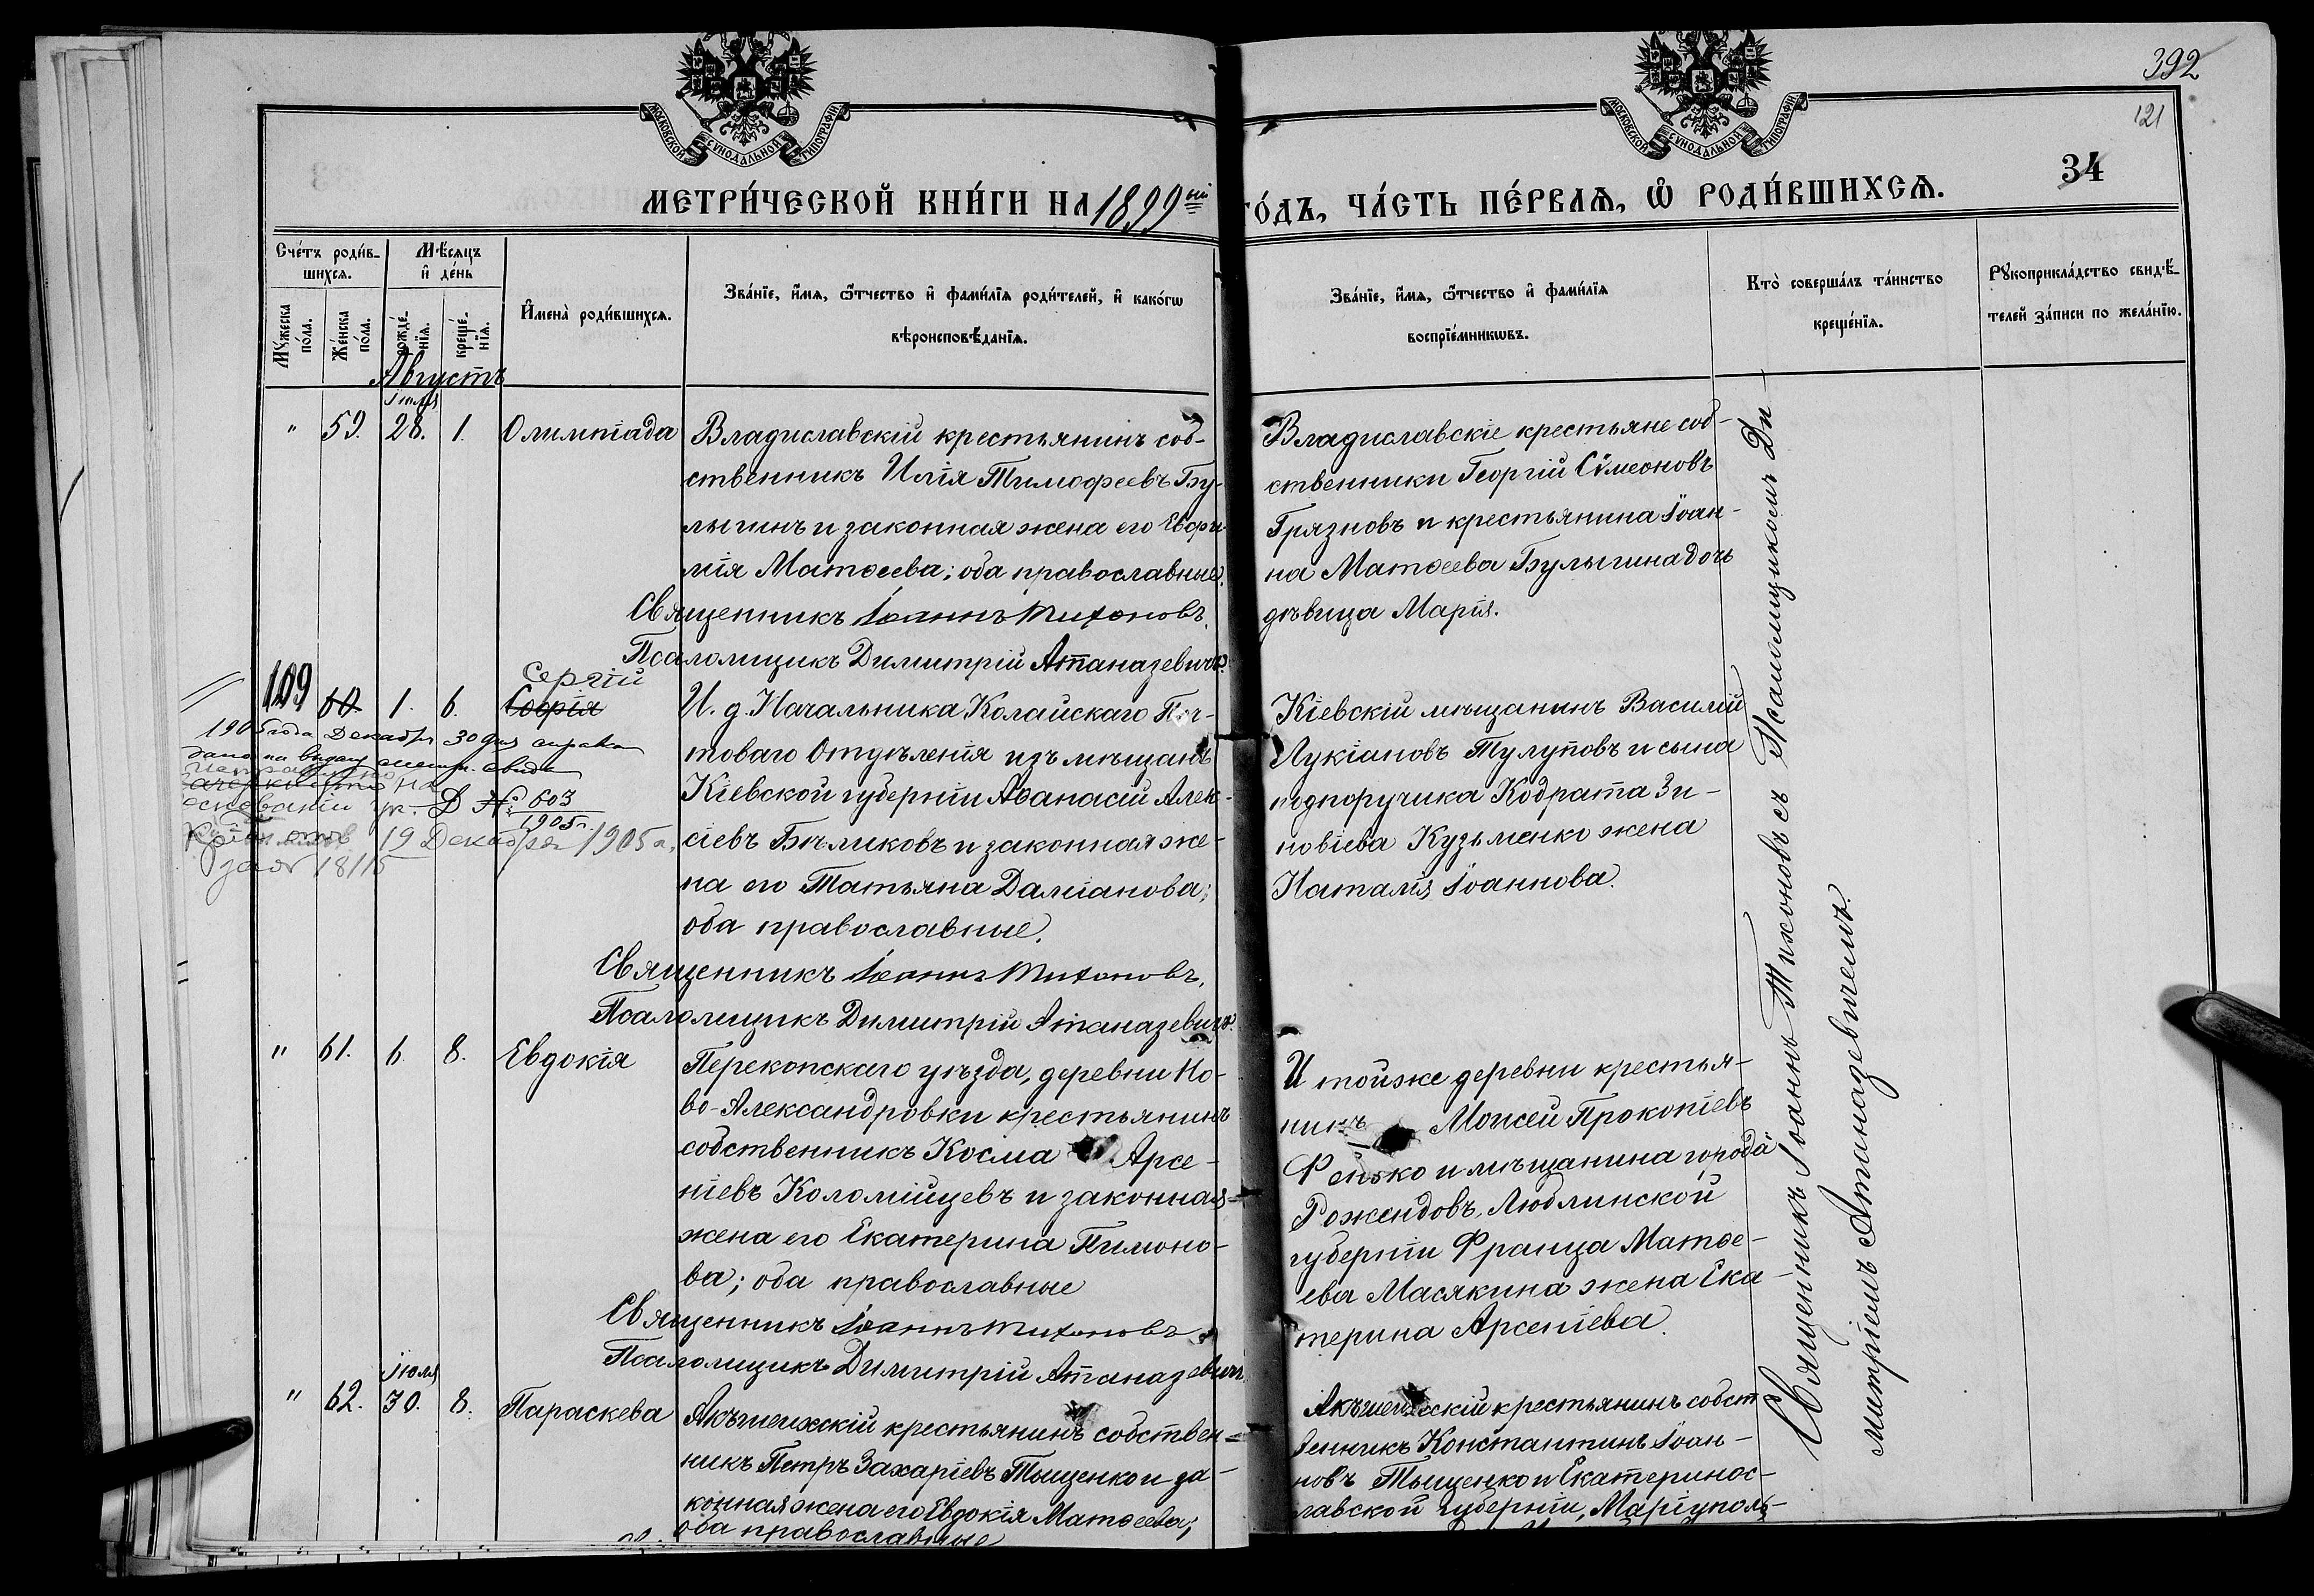 392
121
34
МОСКОВСКОЙ СУНОДАЛЬНОЙ ТИПОГРАФІИ
МОСКОВСКОЙ СУНОДАЛЬНОЙ ТИПОГРАФІИ
МЕТРИ́ЧЕСКОЙ КНИ́ГИ НА 1899ый ГО́ДЪ, ЧА́СТЬ ПЕ́РВАѦ, Ѡ҆ РОДИ́ВШИХСѦ.
Сче́тъ роди́в-
шихсѧ.
Мꙋ́жеска
по́ла.
Же́нска
по́ла.
Мѣ́сѧцъ
и҆ де́нь
рожде́-
нїѧ.
креще́-
нїѧ.
И҆мена̀ роди́вшихсѧ.
Зва́нїе, и҆́мѧ, ѻ҆́тчество и҆ фами́лїѧ роди́телей, и҆ како́гѡ
вѣроисповѣ́данїѧ.
Зва́нїе, и҆́мѧ, ѻ҆́тчество и҆ фами́лїѧ
воспрїе́мникѡвъ.
Кто̀ соверша́лъ та́инство
креще́нїѧ.
Рꙋкоприкла́дство свидѣ́-
телей за́писи по жела́нїю.
Августъ
Іюля
" 59. 28. 1. Олимпіада
Владиславскій крестьянинъ соб-
ственникъ Илія Тимоѳеевъ Бу-
лыгинъ и законная жена его Евфи-
мія Матѳеева; оба православные.
Священникъ Іоаннъ Тихоновъ.
Псаломщикъ Димитрій Атаназевичъ.
Владиславскіе крестьяне соб-
ственники Георгій Сѵмеоновъ
Грязновъ и крестьянина Іоан-
на Матѳеева Булыгина дочь
дѣвица Марія.
Сергій
109 60. 1. 6. Софія
1905 года Декабря 30 дня справка
дано на выдачу метр. свид.
на
основаніи ук. Д № 603
1905 г.
19 Декабря 1905 г.
18115
И. д. Начальника Колайскаго Поч-
товаго Отдѣленія изъ мѣщанъ
Кіевской губерніи Аѳанасій Алек-
сіевъ Бѣликовъ и законная же-
на его Татьяна Даміанова;
оба православные.
Священникъ Іоаннъ Тихоновъ.
Псаломщикъ Димитрій Атаназевичъ.
Кіевскій мѣщанинъ Василій
Лукіановъ Тулуповъ и сына
подпоручика Кодрата Зи-
новіева Кузьменко жена
Наталія Іоаннова.
" 61. 6. 8. Евдокія
Перекопскаго уѣзда, деревни Но-
во-Александровки крестьянинъ
собственникъ Косма Арсе-
ніевъ Коломійцевъ и законная
жена его Екатерина Пимоно-
ва; оба православные
Священникъ Іоаннъ Тихоновъ
Псаломщикъ Димитрій Атаназевичъ
И тойже деревни крестья-
нинъ Моисей Прокопіевъ
Фенько и мѣщанина города
Рожендовъ, Люблинской
губерніи Франца Матѳе-
ева Масякина жена Ека-
терина Арсеніева.
Іюля
" 62. 30. 8. Параскева
Акъшеихскій крестьянинъ собствен-
никъ Петръ Захаріевъ Тыщенко и за-
конная жена его Евдокія Матѳеева;
оба православные
Акъшеихскій крестьянинъ собст
венникъ Константинъ Іоан-
новъ Тыщенко и Екатеринос-
лавской губерніи, Маріуполь-
Священникъ Іоаннъ Тихоновъ съ Псаломщикомъ Ди
митріемъ Атаназевичемъ.